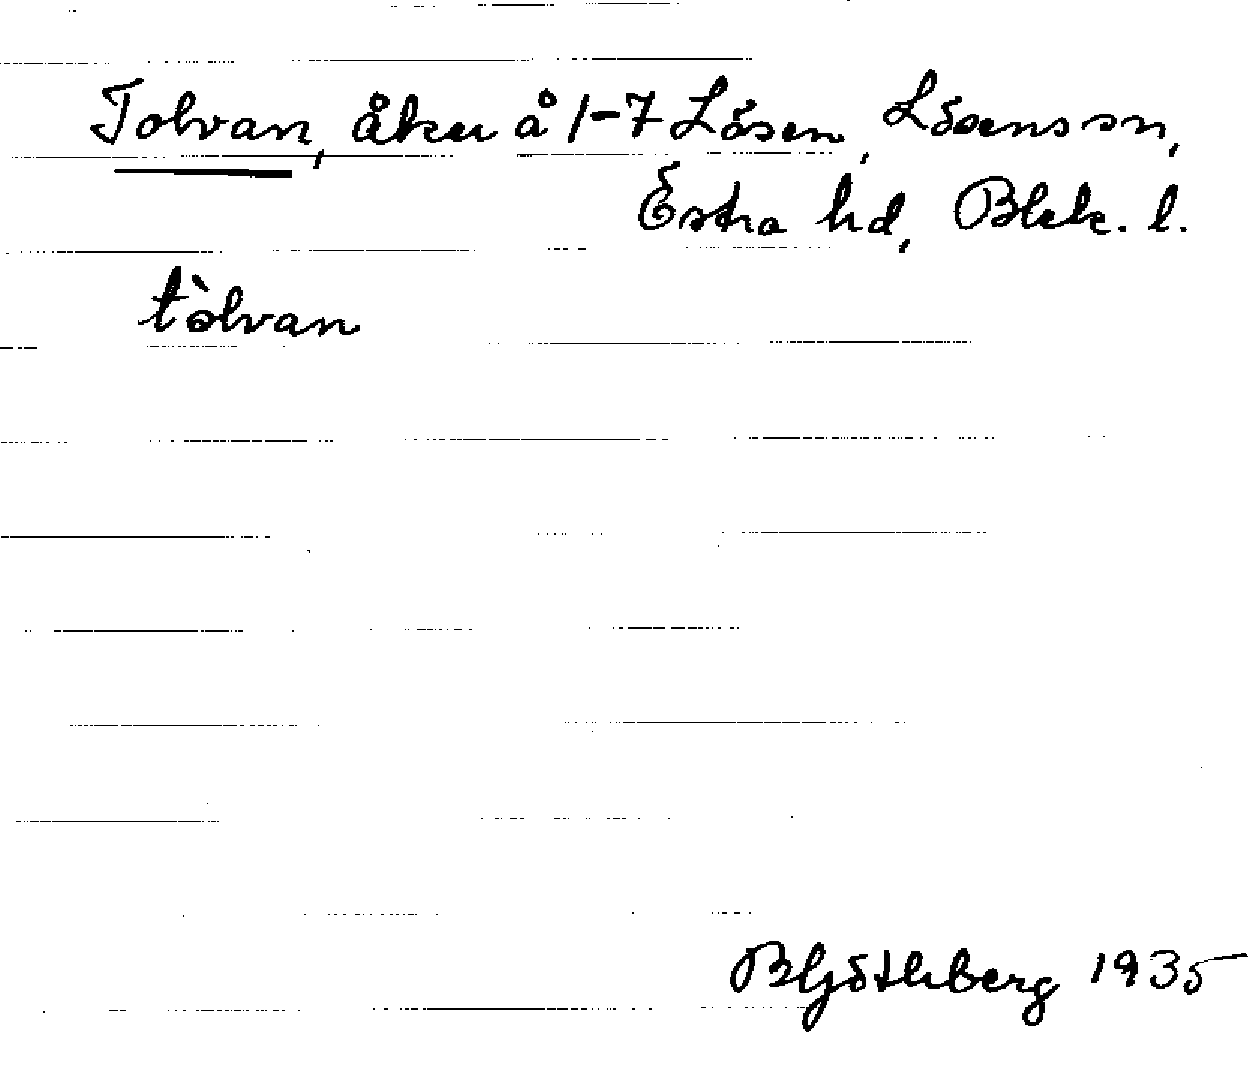 Tolvan, åker å 1-7 Lösen, Lösens sn,
Östra hd, Blek. l.
tòlvan
B Götlberg 1935